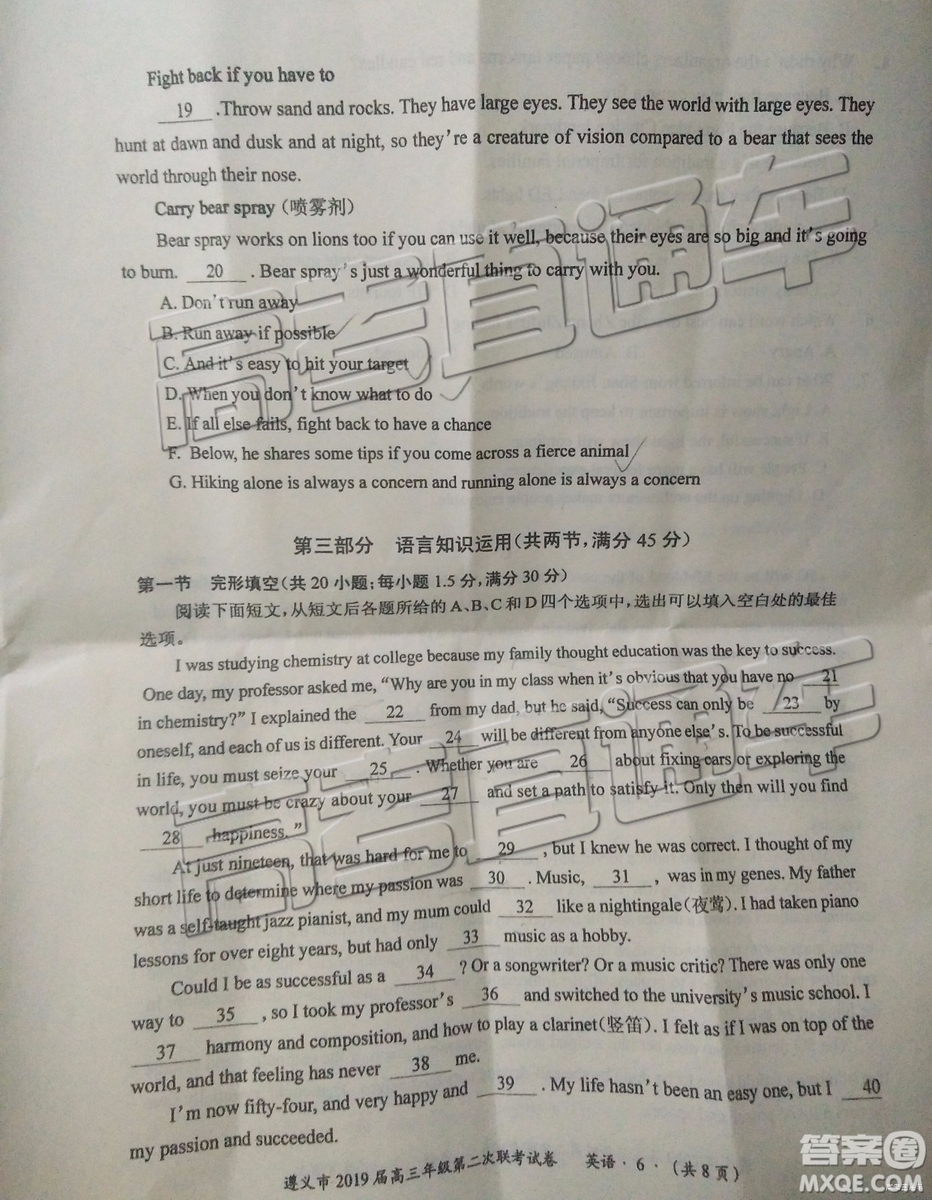 Fight back if you have to
19 .Throw sand and rocks. They have large eyes. They see the world with large eyes. They
hunt at dawn and dusk and at night, so they're a creature of vision compared to a bear that sees the
world through their nose.
Carry bear spray (喷雾剂)
Bear spray works on lions too if you can use it well, because their eyes are so big and it's going
to burn. 20 . Bear spray's just a wonderful thing to carry with you.
A. Don't run away
B. Run away if possible
C. And it's easy to hit your target
D. When you don't know what to do
E. If all else fails, fight back to have a chance
F. Below, he shares some tips if you come across a fierce animal
G. Hiking alone is always a concern and running alone is always a concern
第三部分 语言知识运用(共两节,满分 45 分)
第一节 完形填空(共 20 小题;每小题 1.5 分,满分 30 分)
阅读下面短文,从短文后各题所给的 A、B、C 和 D 四个选项中,选出可以填入空白处的最佳
选项。
I was studying chemistry at college because my family thought education was the key to success.
One day, my professor asked me, "Why are you in my class when it's obvious that you have no 21
in chemistry?" I explained the 22 from my dad, but he said, "Success can only be 23 by
oneself, and each of us is different. Your 24 will be different from anyone else's. To be successful
in life, you must seize your 25 . Whether you are 26 about fixing cars or exploring the
world, you must be crazy about your 27 and set a path to satisfy it. Only then will you find
28 happiness."
At just nineteen, that was hard for me to 29 , but I knew he was correct. I thought of my
short life to determine where my passion was 30 . Music, 31 , was in my genes. My father
was a self-taught jazz pianist, and my mum could 32 like a nightingale(夜莺). I had taken piano
lessons for over eight years, but had only 33 music as a hobby.
Could I be as successful as a 34 ? Or a songwriter? Or a music critic? There was only one
way to 35 , so I took my professor's 36 and switched to the university's music school. I
37 harmony and composition, and how to play a clarinet(竖笛). I felt as if I was on top of the
world, and that feeling has never 38 me.
I'm now fifty-four, and very happy and 39 . My life hasn't been an easy one, but I 40
my passion and succeeded.
遵义市 2019 届高三年级第二次联考试卷 英语·6·(共 8 页)
高考直通车
高考直通车
答案圈
MXQE.COM